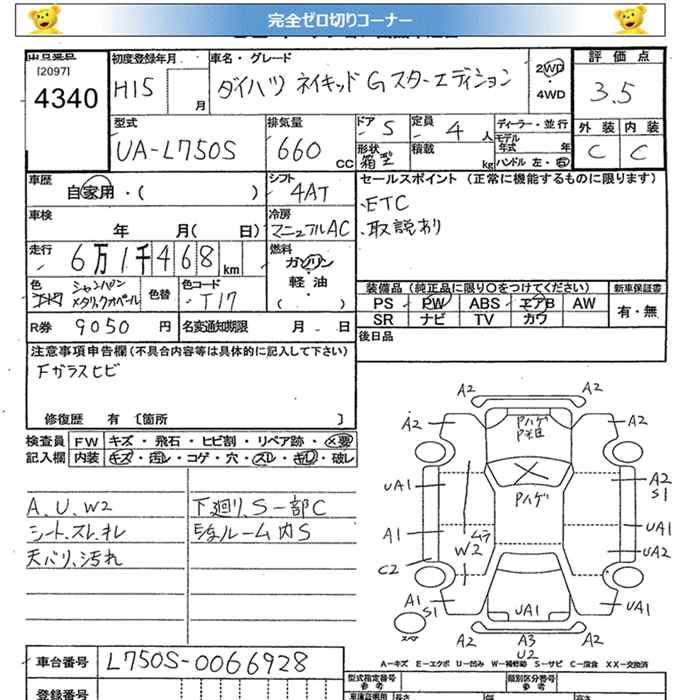 完全ゼロ切りコーナー
[2097]
4340
初度登録年月
H15
月
車名・グレード
ダイハツ ネイキッド G スターエディション
2WD
・
4WD
評価点
3.5
外装 内装
C C
型式
UA-L750S
排気量
660
CC
ドア 5
形状
箱型
定員
4 人
積載
kg
ディーラー・並行
モデル
年式 年
ハンドル 左・右
車歴
自家用・( )
シフト
4AT
セールスポイント (正常に機能するものに限ります)
・ETC
・取説あり
車検
年 月 ( 日)
冷房
マニュアルAC
走行
6万1千468 km
燃料
ガソリン
・
軽油
( )
色
シャンパン
メタリックオペール
色替
色コード
T17
装備品 (純正品に限り〇をつけてください) 新車保証書
PS PW ABS エアB AW
SR ナビ TV カワ
有・無
R券 9050 円
名変通知期限 月 日
後日品
注意事項申告欄 (不具合内容等は具体的に記入して下さい)
Fガラスヒビ
修復歴 有 〔箇所 〕
検査員 FW キズ・飛石・ヒビ割・リペア跡・×要
記入欄 内装 キズ・汚レ・コゲ・穴・スレ・キレ・破レ
A、U、W2
シート、スレ、キレ
天バリ、汚れ
下廻り、S一部C
ルーム内S
A2 A2
A2 A2
Pハゲ
Pハゲ
UA1
A2
S1
A1
UA1
ムラ
W2
UA2
C2
A1
S1
UA1
A1
スペア
A2 A3 A2
U2
A-キズ E-エクボ U-凹み W-補修跡 S-サビ C-腐食 XX-交換済
車台番号 L750S-0066928
登録番号
型式指定番号
参考
類別区分番号
参考
車庫証明用
長さ
幅
高さ